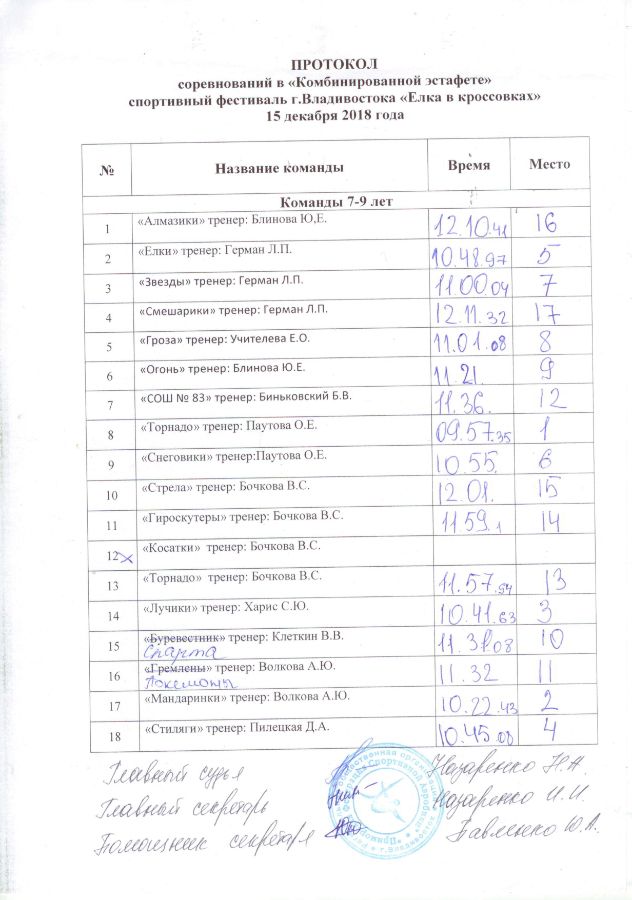 ПРОТОКОЛ
соревнований в «Комбинированной эстафете»
спортивный фестиваль г.Владивостока «Елка в кроссовках»
15 декабря 2018 года
№ Название команды Время Место
Команды 7-9 лет
1 «Алмазики» тренер: Блинова Ю,Е. 12.10.41 16
2 «Елки» тренер: Герман Л.П. 10.48.97 5
3 «Звезды» тренер: Герман Л.П. 11.00.04 7
4 «Смешарики» тренер: Герман Л.П. 12.11.32 17
5 «Гроза» тренер: Учителева Е.О. 11.01.08 8
6 «Огонь» тренер: Блинова Ю.Е. 11.21. 9
7 «СОШ № 83» тренер: Биньковский Б.В. 11.36. 12
8 «Торнадо» тренер: Паутова О.Е. 09.57.35 1
9 «Снеговики» тренер:Паутова О.Е. 10.55. 6
10 «Стрела» тренер: Бочкова В.С. 12.01. 15
11 «Гироскутеры» тренер: Бочкова В.С. 11.59.1 14
12 x «Косатки» тренер: Бочкова В.С.
13 «Торнадо» тренер: Бочкова В.С. 11.57.94 13
14 «Лучики» тренер: Харис С.Ю. 10.41.63 3
15 «Буревестник» тренер: Клеткин В.В. 11.31.08 10
Спарта
16 «Гремлены» тренер: Волкова А.Ю. 11.32 11
Покемоны
17 «Мандаринки» тренер: Волкова А.Ю. 10.22.43 2
18 «Стиляги» тренер: Пилецкая Д.А. 10.45.08 4
Главный судья Назаренко Н.А.
Главный секретарь Назаренко И.И.
Помощник секретаря Павленко Ю.А.